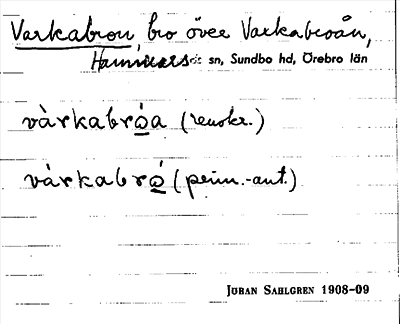 Varkabron, bro över Varkabroån,
Hammars sn, Sundbo hd, Örebro län
vàrkabró̲a (renskr.)
vàrkabró̲ (prim.-ant.)
JÖRAN SAHLGREN 1908-09